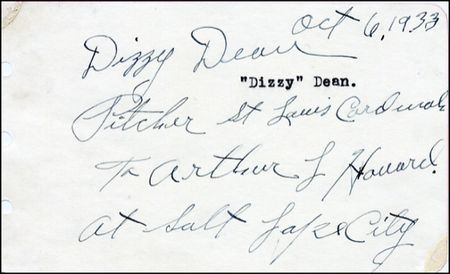 Oct 6, 1933
Dizzy Dean
"Dizzy" Dean.
Pitcher St Louis Cardinals
To Arthur L Howard.
At Salt Lake City